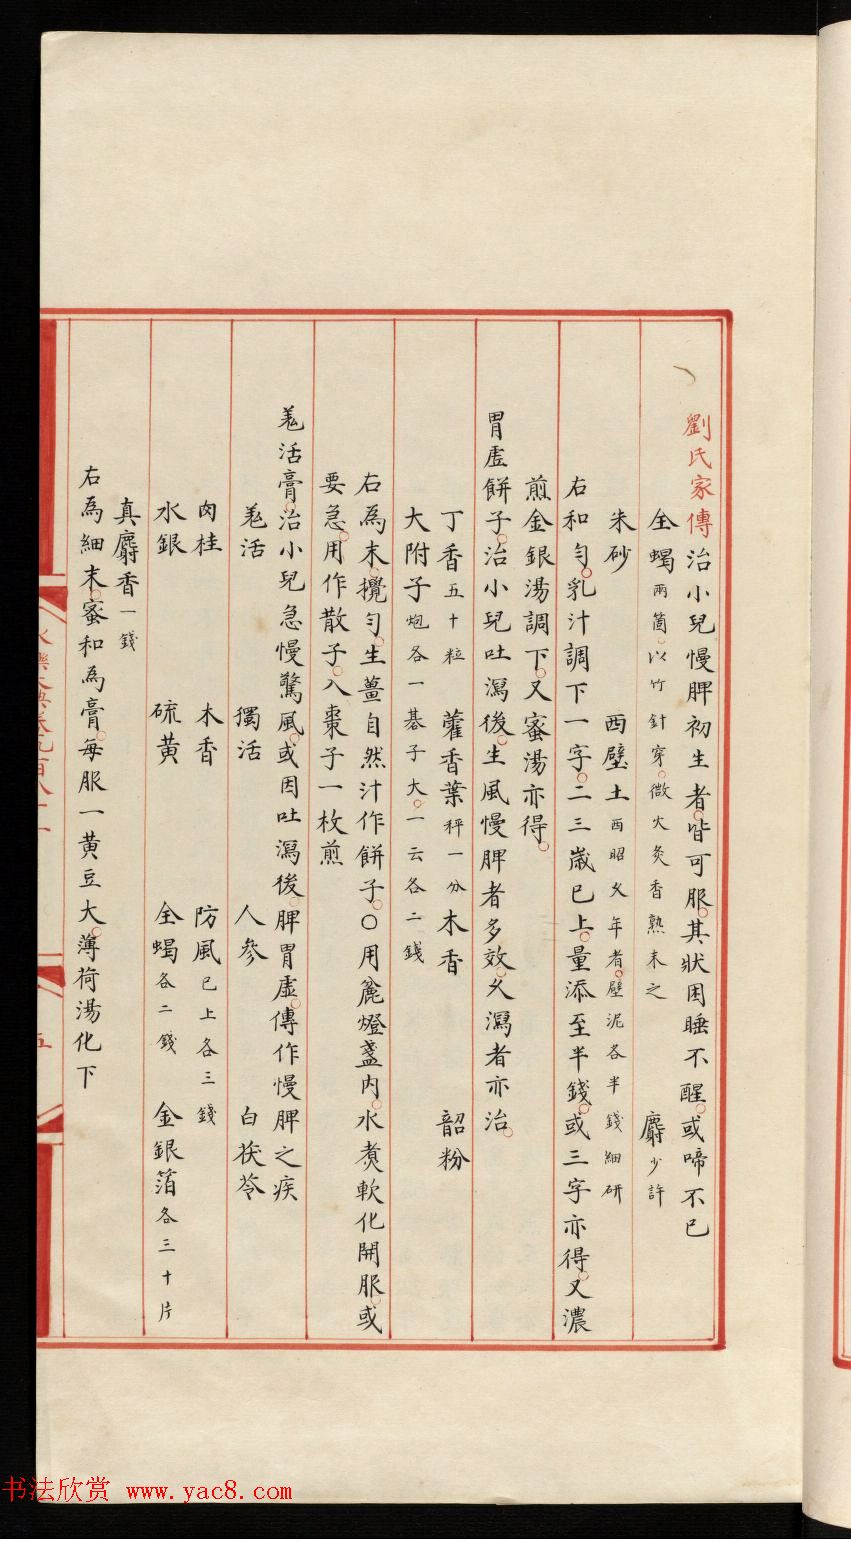 劉氏家傳治小兒慢脾初生者皆可服其狀困睡不醒或啼不已
全蝎兩箇以竹針穿微火炙香熟末之 麝少許
朱砂 西壁土西照久年者壁泥各半錢細研
右和勻乳汁調下一字二三歲已上量添至半錢或三字亦得又濃
煎金銀湯調下又蜜湯亦得
胃虛餅子治小兒吐瀉後生風慢脾者多效久瀉者亦治
丁香五十粒 藿香葉秤一分 木香 韶粉
大附子炮各一碁子大一云各二錢
右為末攪勻生薑自然汁作餅子〇用麄燈盞內水煑軟化開服或
要急用作散子入棗子一枚煎
羗活膏治小兒急慢驚風或因吐瀉後脾胃虛傳作慢脾之疾
羗活 獨活 人參 白茯苓
肉桂 木香 防風已上各三錢
水銀 硫黃 全蝎各二錢 金銀箔各三十片
真麝香一錢
右為細末蜜和為膏每服一黃豆大薄荷湯化下
永樂大典卷九百八十一
五
书法欣赏 www.yac8.com